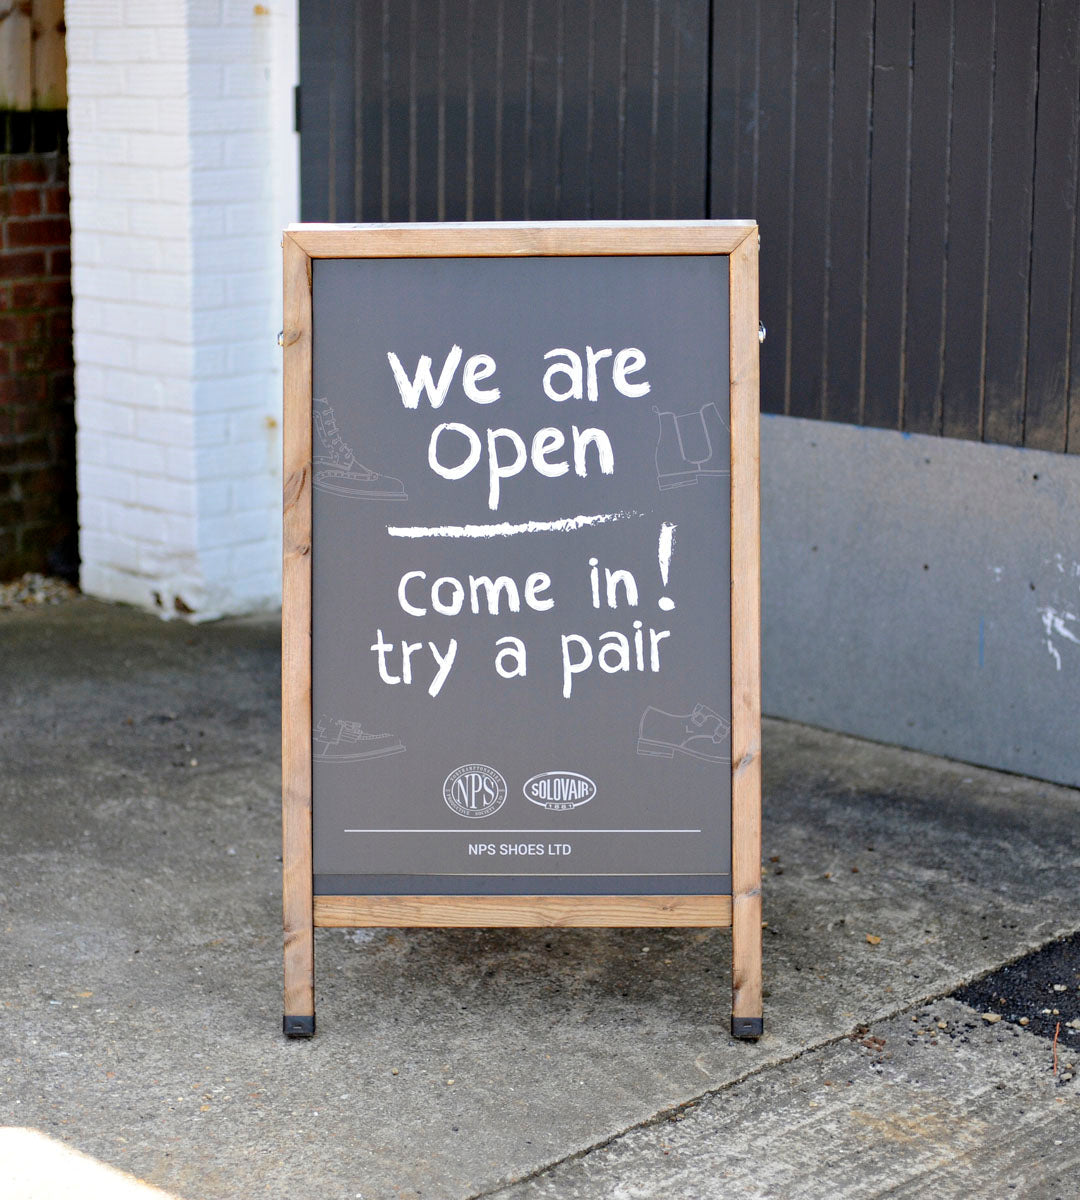 We are
open
come in!
try a pair
NPS
SOLOVAIR
1881
NPS SHOES LTD